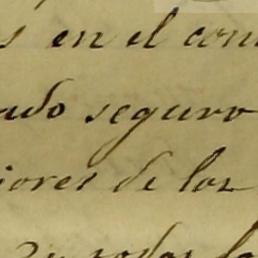 s en el con
ado seguro
iores de los